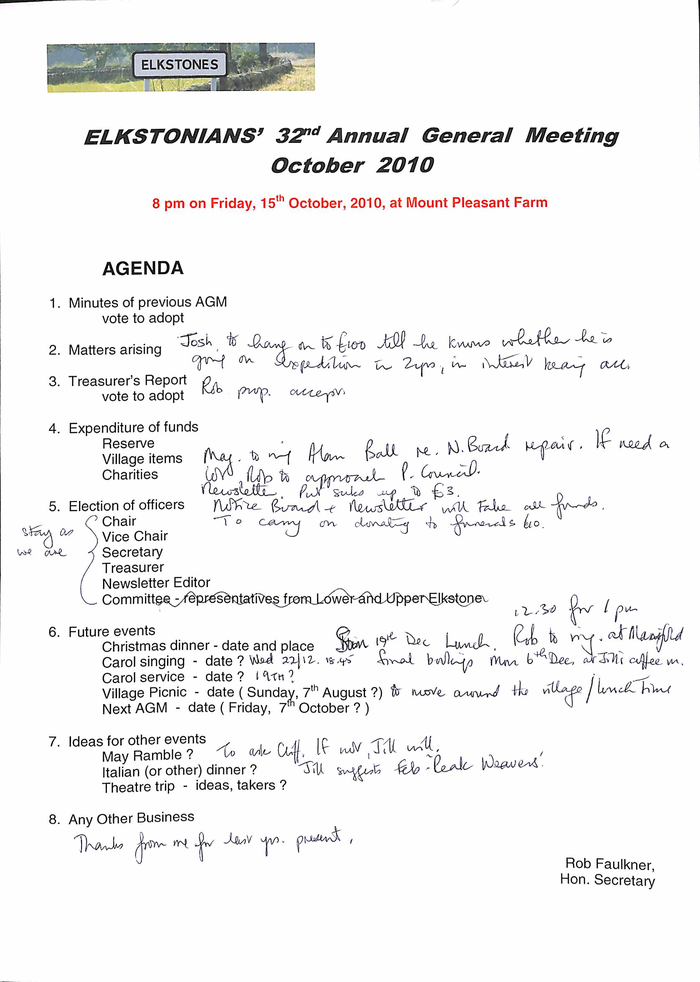 ELKSTONES
ELKSTONIANS' 32nd Annual General Meeting
October 2010
8 pm on Friday, 15th October, 2010, at Mount Pleasant Farm
AGENDA
1. Minutes of previous AGM
vote to adopt
2. Matters arising Josh to hang on to £100 till he knows whether he is
going on expedition in 2yrs, in interest bearing acc.
3. Treasurer's Report
vote to adopt Rob prop. accept.
4. Expenditure of funds
Reserve
Village items May. to ring Alan Ball re. N.Board repair. If need a
Charities Rob to approach P. Council.
Newslette. Put subs up to £3.
5. Election of officers Notice Board + Newsletter will take all funds.
Chair To carry on donating to funerals £10.
stay as
we are
Vice Chair
Secretary
Treasurer
Newsletter Editor
Committee - representatives from Lower and Upper Elkstone
12.30 for 1 pm
6. Future events
Christmas dinner - date and place Sun 19th Dec Lunch. Rob to ring. at Manifold
Carol singing - date ? Wed 22/12. 18.45 final bookings Mon 6th Dec, at Jill's coffee m.
Carol service - date ? 19TH?
Village Picnic - date ( Sunday, 7th August ?) to move around the village/lunch time
Next AGM - date ( Friday, 7th October ? )
7. Ideas for other events
May Ramble ? To ask Cliff. If not, Jill will.
Italian (or other) dinner ? Jill suggests Feb - 'Peak Weavers'.
Theatre trip - ideas, takers ?
8. Any Other Business
Thanks from me for last yrs. present.
Rob Faulkner,
Hon. Secretary